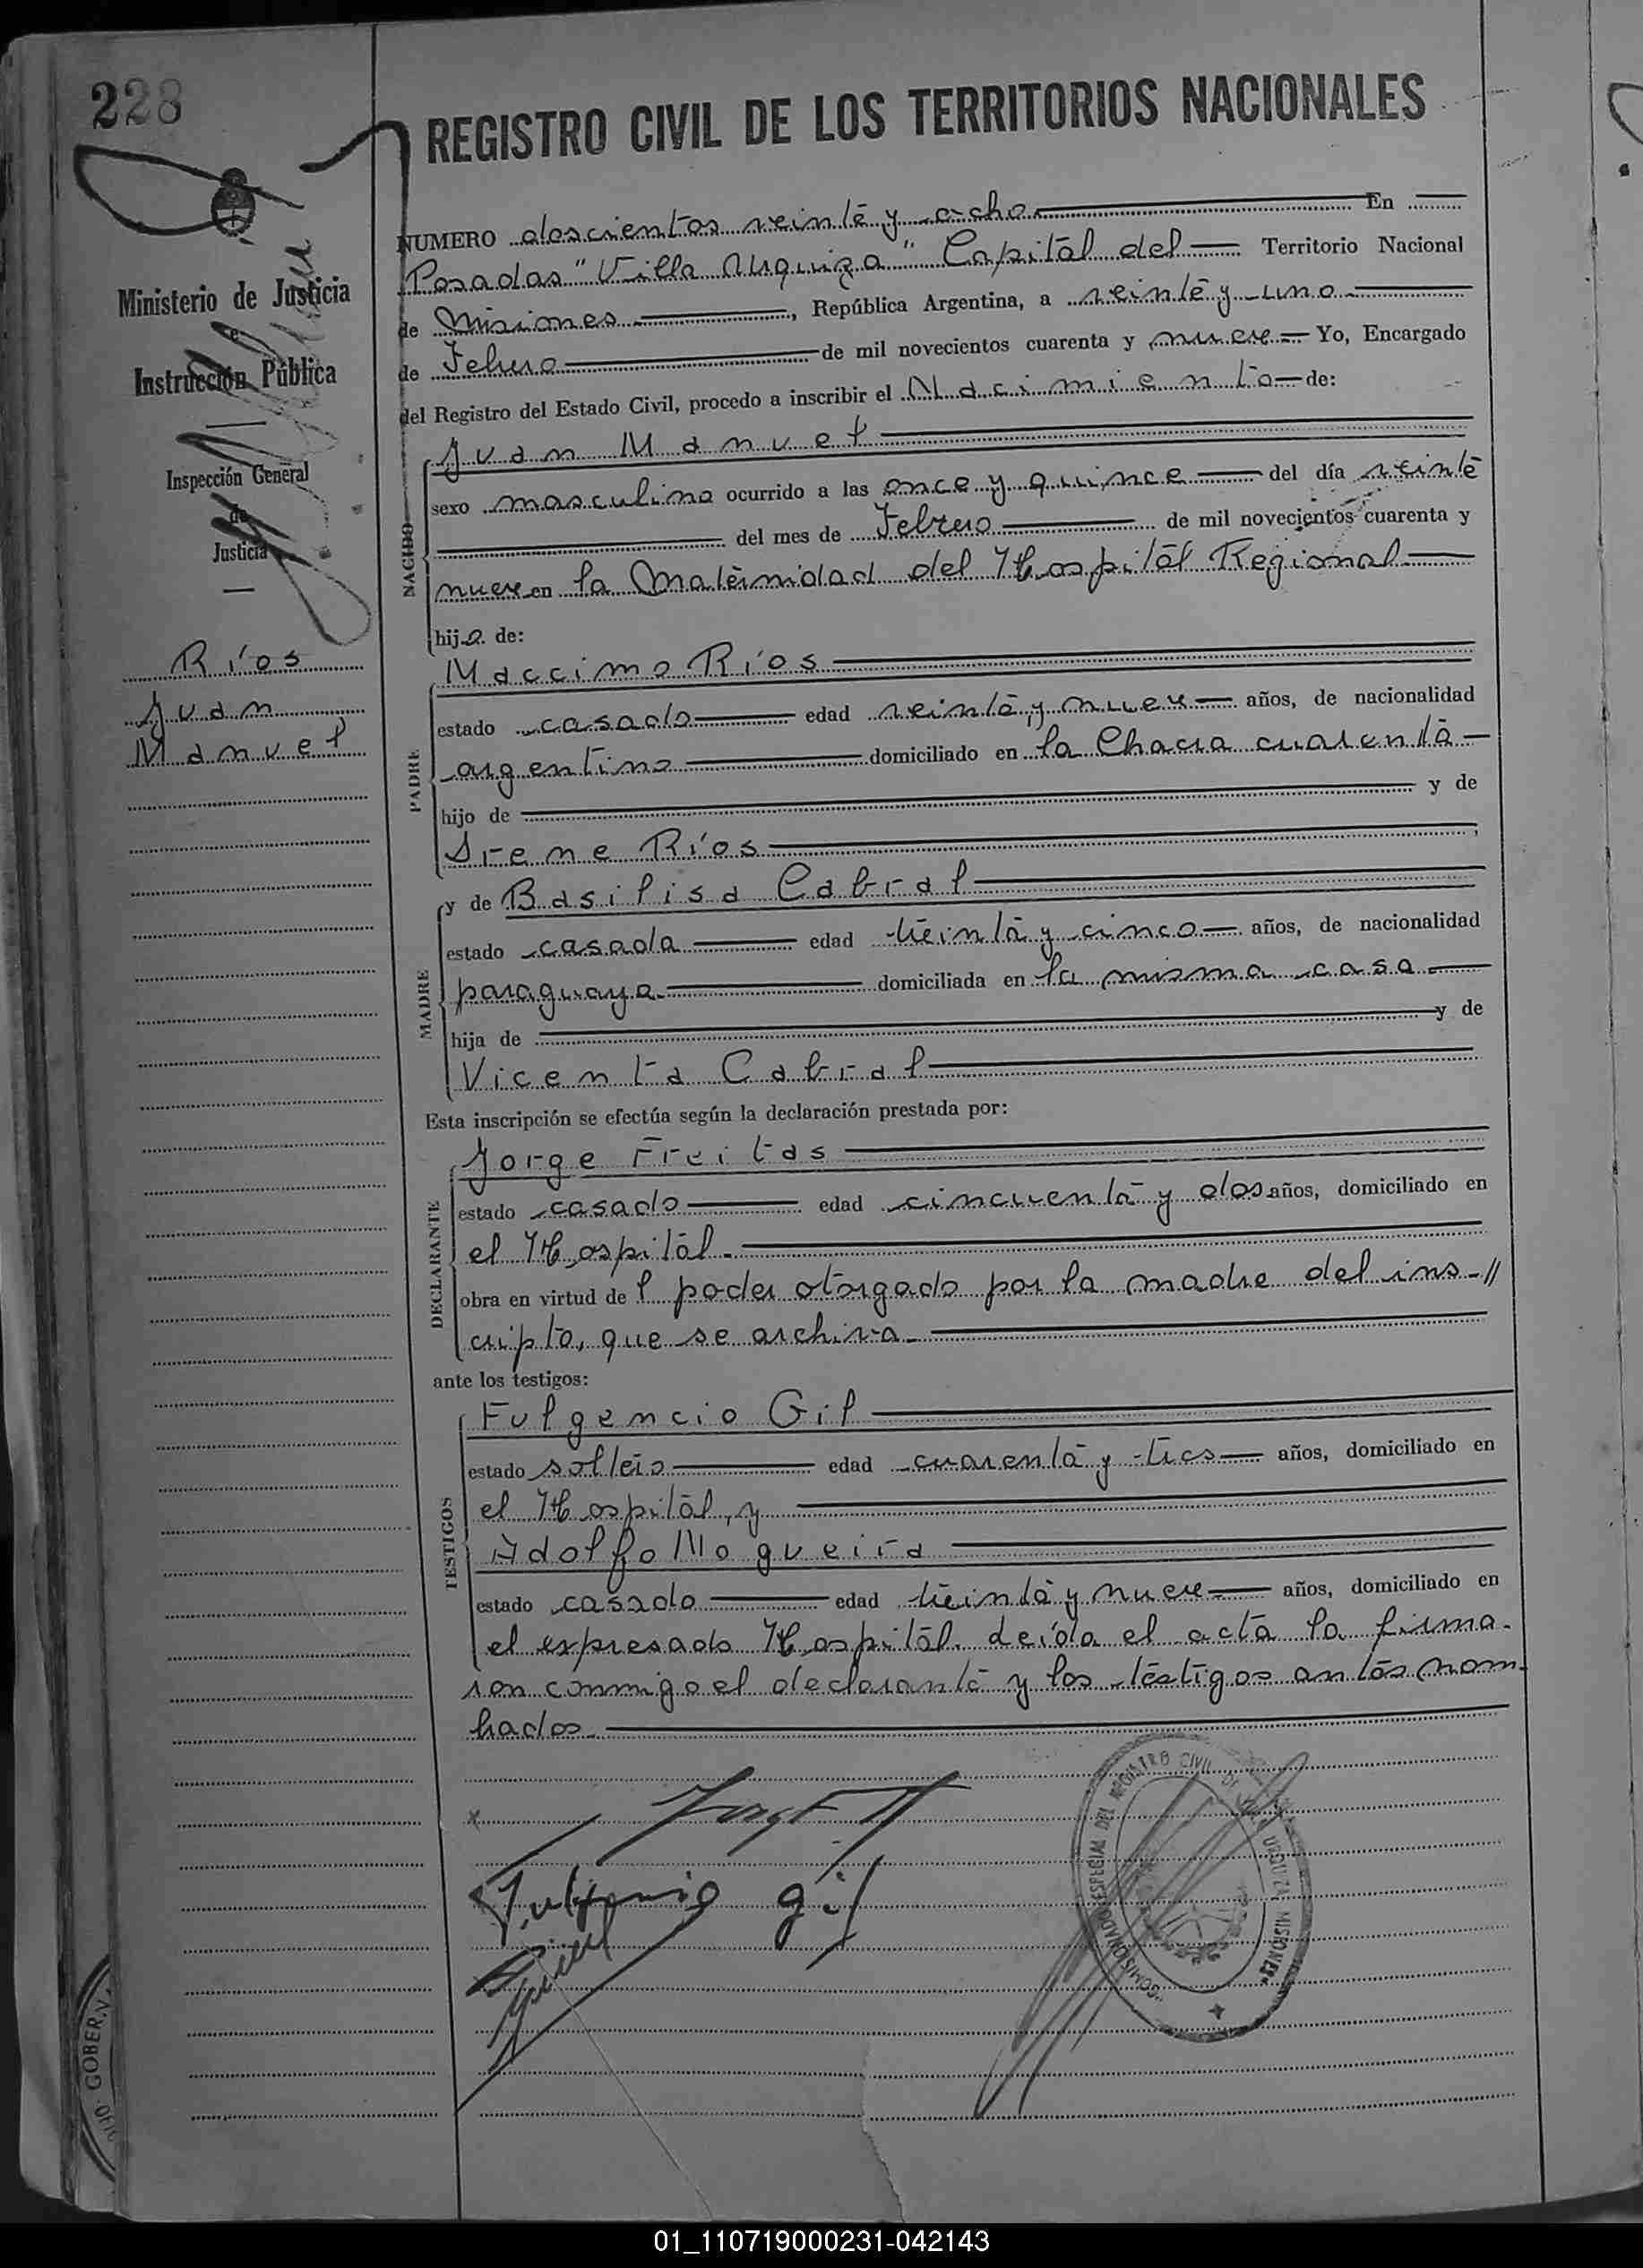 228
REGISTRO CIVIL DE LOS TERRITORIOS NACIONALES
Ministerio de Justicia
e
Instrucción Pública
Inspección General
de
Justicia
Ríos
Juan
Manuel
NUMERO doscientos veinte y ocho En
Posadas "Villa Urquiza" Capital del Territorio Nacional
de Misiones, República Argentina, a veinte y uno
de Febrero de mil novecientos cuarenta y nueve Yo, Encargado
del Registro del Estado Civil, procedo a inscribir el Nacimiento de:
NACIDO
Juan Manuel
sexo masculino ocurrido a las once y quince del día veinte
del mes de Febrero de mil novecientos cuarenta y
nueve en la Maternidad del Hospital Regional
hijo de:
PADRE
Maccimo Ríos
estado casado edad veinte y nueve años, de nacionalidad
argentino domiciliado en la Chacra cuarenta
hijo de y de
Irene Ríos
MADRE
y de Basilisa Cabral
estado casada edad treinta y cinco años, de nacionalidad
paraguaya domiciliada en la misma casa
hija de y de
Vicenta Cabral
Esta inscripción se efectúa según la declaración prestada por:
DECLARANTE
Jorge Freitas
estado casado edad cincuenta y dos años, domiciliado en
el Hospital.
obra en virtud del poder otorgado por la madre del ins-//
cripto, que se archiva.
ante los testigos:
TESTIGOS
Fulgencio Gil
estado soltero edad cuarenta y tres años, domiciliado en
el Hospital, y
Adolfo Nogueira
estado casado edad treinta y nueve años, domiciliado en
el expresado Hospital. Leída el acta la firma-
ron conmigo el declarante y los testigos antes nom-
brados.
Fulgencio Gil
COMISIONADO ESPECIAL DEL REGISTRO CIVIL DE VILLA URQUIZA MISIONES
GOBER.
01_110719000231-042143